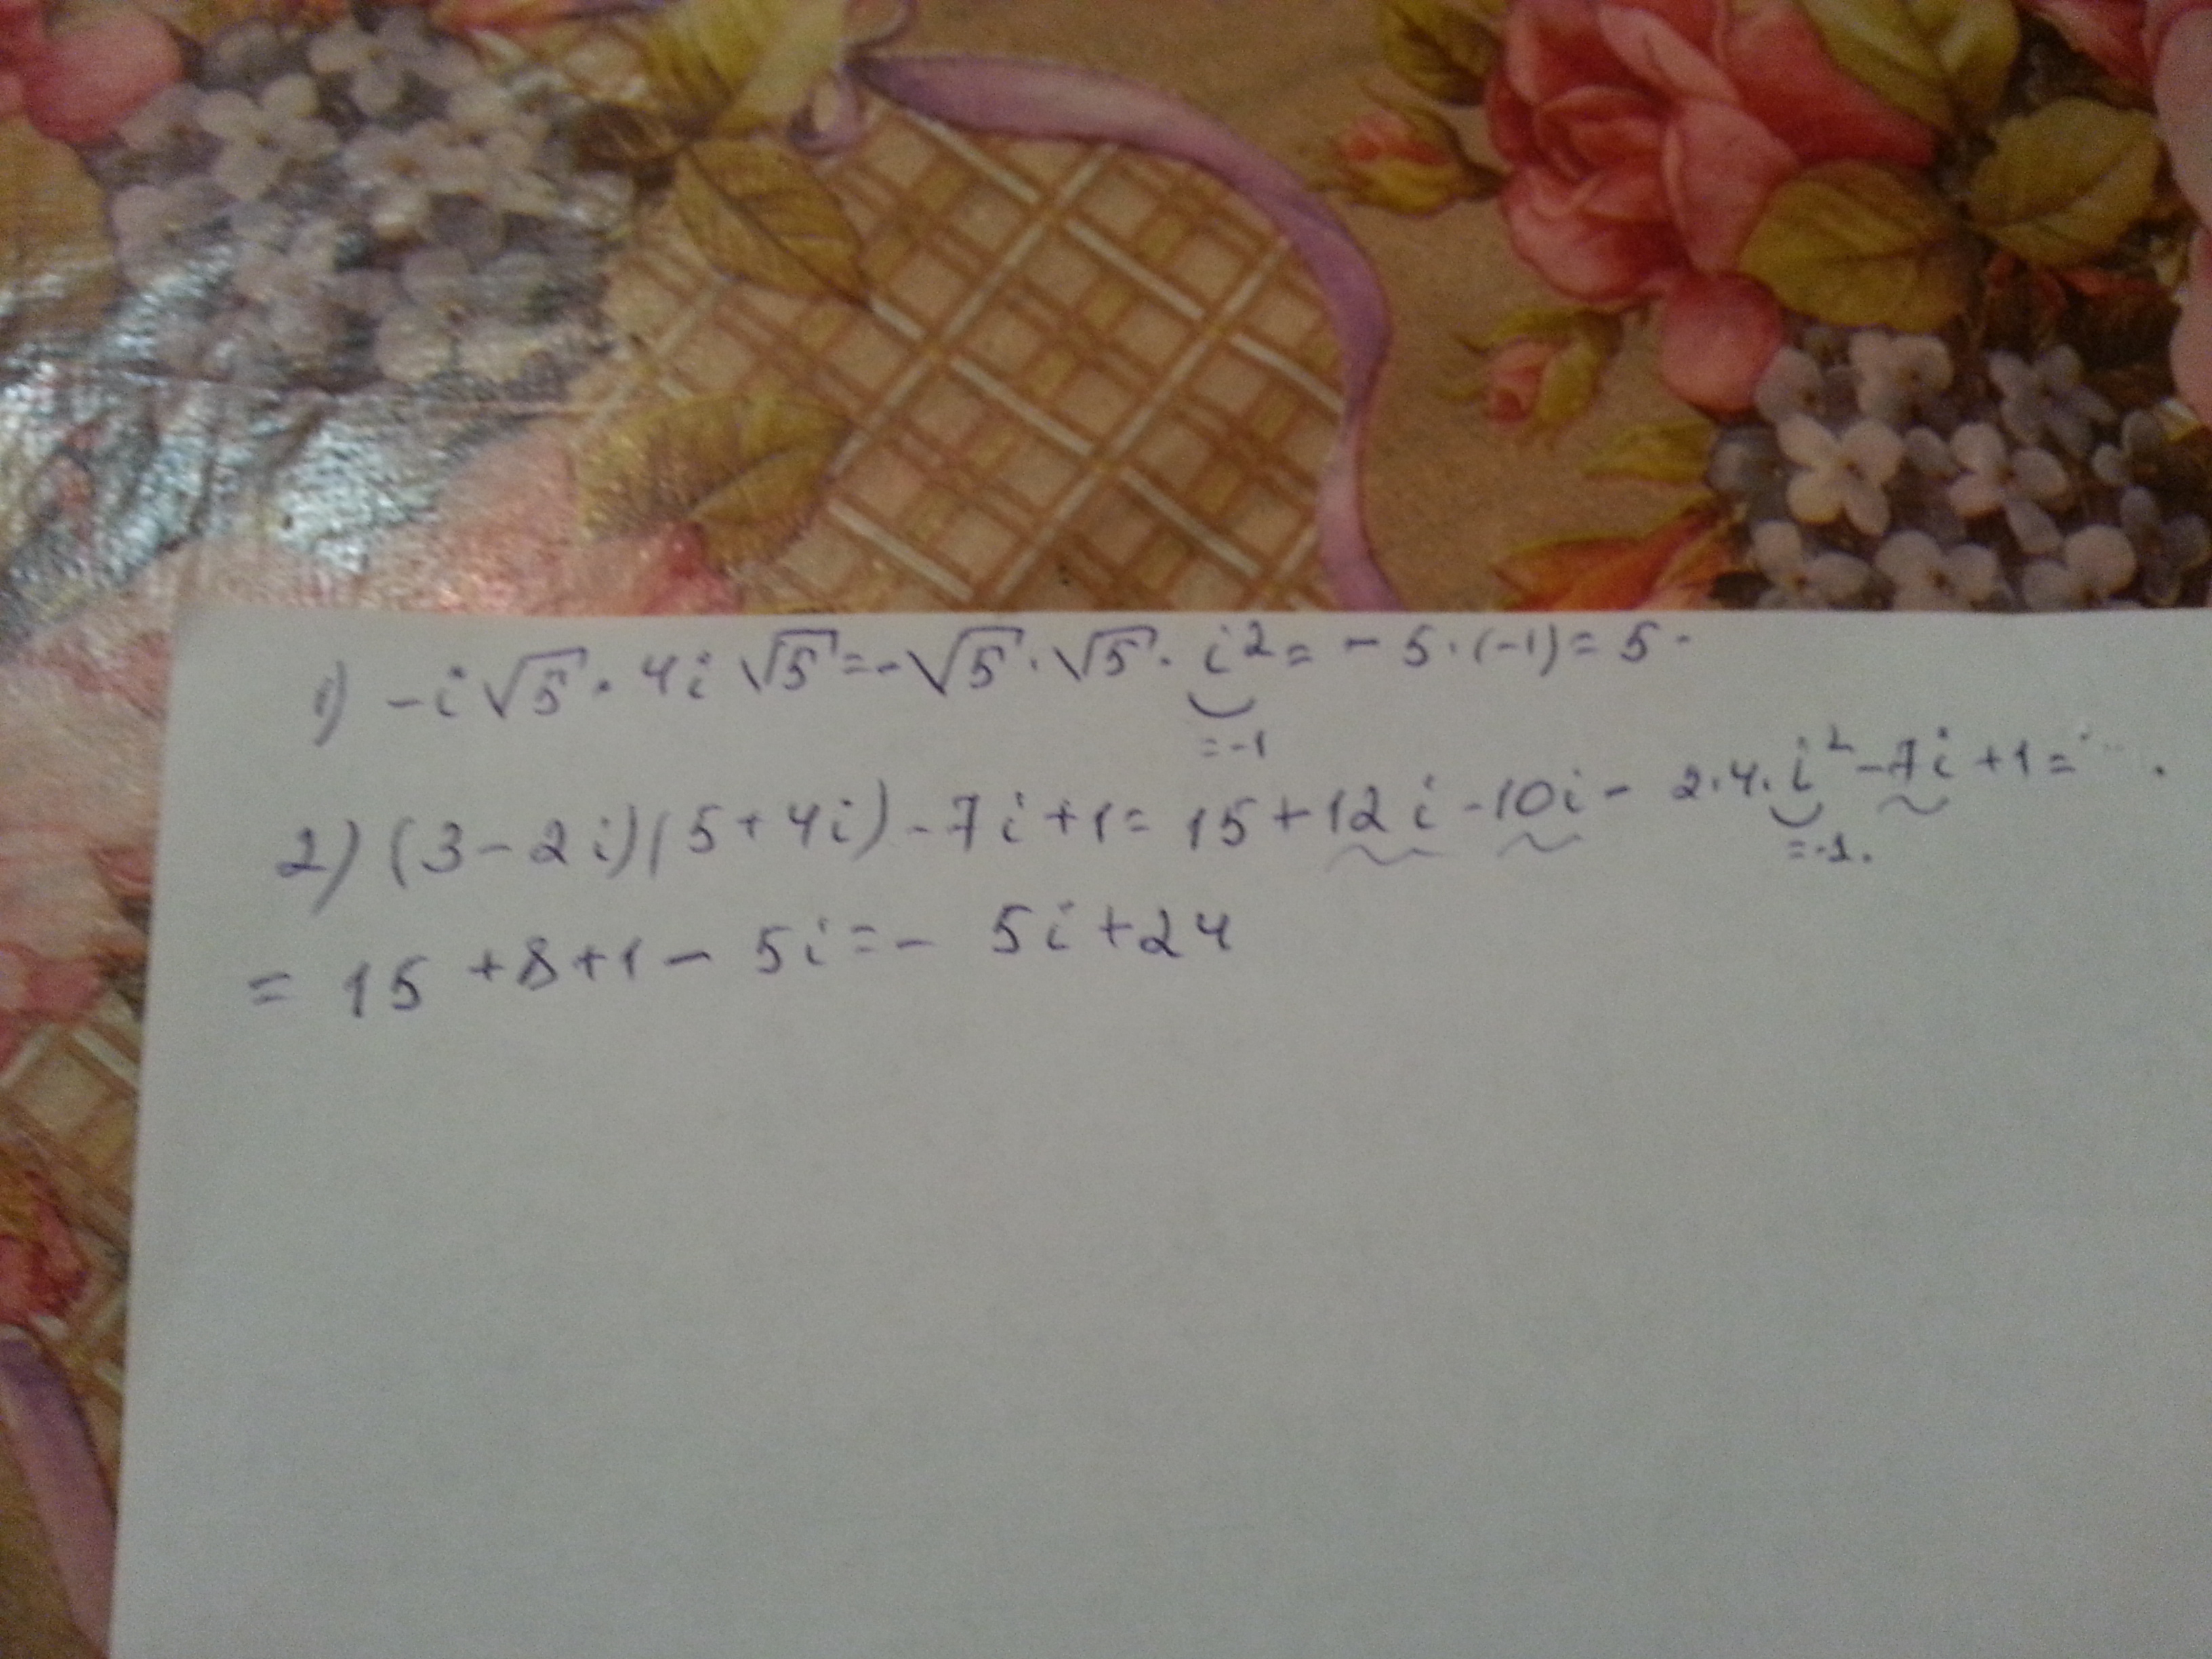 1) -i√5 · 4i√5 = -√5 · √5 · i² = -5 · (-1) = 5.
= -1
2) (3 - 2i)(5 + 4i) - 7i + 1 = 15 + 12i - 10i - 2·4·i² - 7i + 1 =
= -1.
= 15 + 8 + 1 - 5i = - 5i + 24